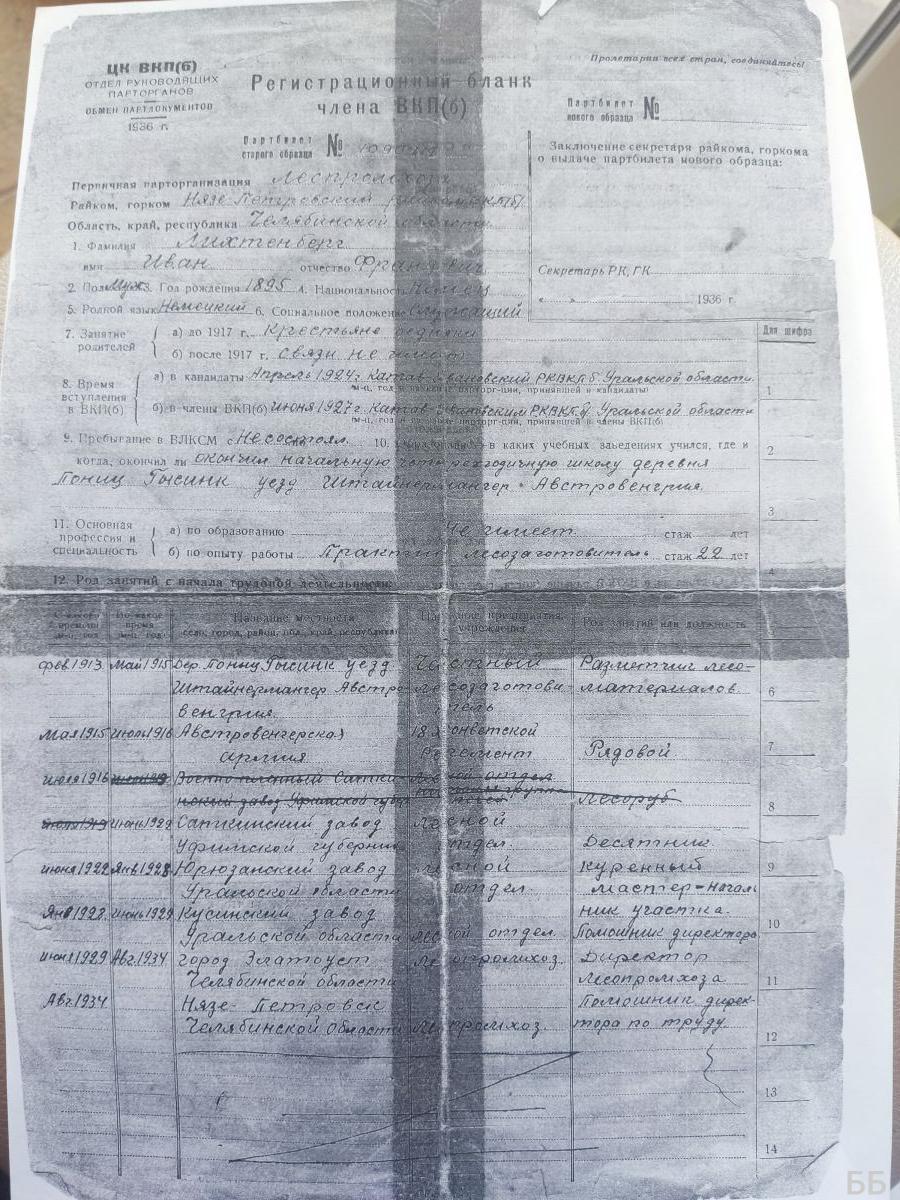 ЦК ВКП(б)
ОТДЕЛ РУКОВОДЯЩИХ
ПАРТОРГАНОВ
ОБМЕН ПАРТДОКУМЕНТОВ
1936 г.
Пролетарии всех стран, соединяйтесь!
Регистрационный бланк
члена ВКП(б)
Партбилет
старого образца №
Партбилет
нового образца №
Заключение секретаря райкома, горкома
о выдаче партбилета нового образца:
Первичная парторганизация Леспромхоза
Райком, горком Нязе-Петровский райком ВКП(б)
Область, край, республика Челябинской области
1. Фамилия Лихтенберг
имя Иван отчество
Секретарь РК, ГК
2. Пол Муж. 3. Год рождения 1895 4. Национальность Немец
« » 1936 г.
5. Родной язык Немецкий 6. Социальное положение Служащий
7. Занятие
родителей
а) до 1917 г. Крестьяне бедняки
б) после 1917 г. связи не имею
Для шифра
8. Время
вступления
в ВКП(б)
а) в кандидаты Апрель 1924 г Катав-Ивановский РКВКПб. Уральской области.
(м-ц, год и название парторг-ции, принявшей в кандидаты)
1
б) в члены ВКП(б) июня 1927 г. Катав-Ивановским РКВКПб Уральской области
(м-ц, год и название парторг-ции, принявшей в члены ВКП(б)
9. Пребывание в ВЛКСМ с Не состоял 10. Образование: в каких учебных заведениях учился, где и
2
когда, окончил ли окончил начальную четырехгодичную школу деревня
Пониц Гысинк уезд Штайнермангер. Австровенгрия.
3
11. Основная
профессия и
специальность
а) по образованию Не имеет стаж лет
б) по опыту работы Практик лесозаготовитель стаж 22 лет
4
12. Род занятий с начала трудовой деятельности:
С какого
времени
м-ц, год
По какое
время
м-ц, год
Название местности
село, город, район, обл., край, республика
Название предприятия,
учреждения
Род занятий или должность
фев 1913 Май 1915 Дер. Пониц Гысинк уезд. Частный Разметчик лесо-
Штайнермангер Австро- лесозаготови- материалов.
6
венгрия. тель
Мая 1915 Июль 1916 Австровенгерская 18
армия Регемент Рядовой.
7
июля 1916 Военно пленный Саткин- Лесной отдел
нский завод Уфимской губер Лесоруб
8
июля 1919 июнь 1922 Саткинский завод Лесной
Уфимской губернии отдел Десятник.
июня 1922 Янв 1928 Юрюзанский завод Лесной Куренный
9
Уральской области отдел. мастер-началь
Янв 1928 Июнь 1929 Кусинский завод ник участка.
10
Уральской области Лесной отдел. Помошник директора
июня 1929 Авг. 1934 город Златоуст Леспромхоз. Директор
Челябинской области Леспромхоза
11
Авг. 1934 Нязе-Петровск Помошник дирек-
Челябинской области Леспромхоз. тора по труду.
12
13
14
ББ